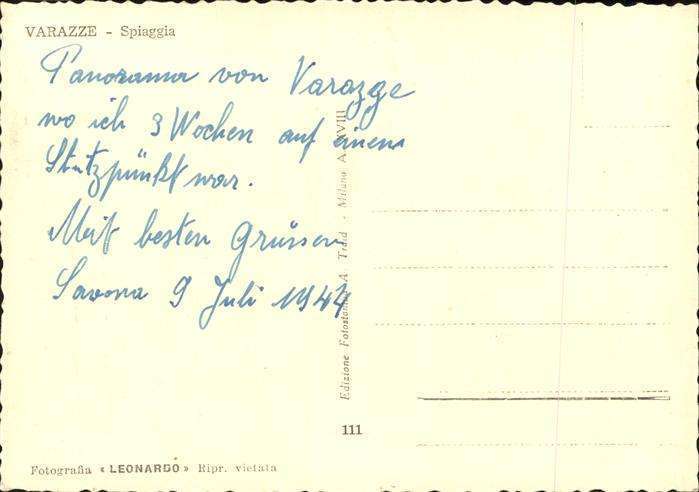 VARAZZE - Spiaggia
Panorama von Varazze
wo ich 3 Wochen auf einem
Stützpünkt war.
Mit besten Grüssen
Savona 9 Juli 1944
Edizione Fotostampa A. Traid - Milano A. XVIII
111
Fotografia « LEONARDO » Ripr. vietata